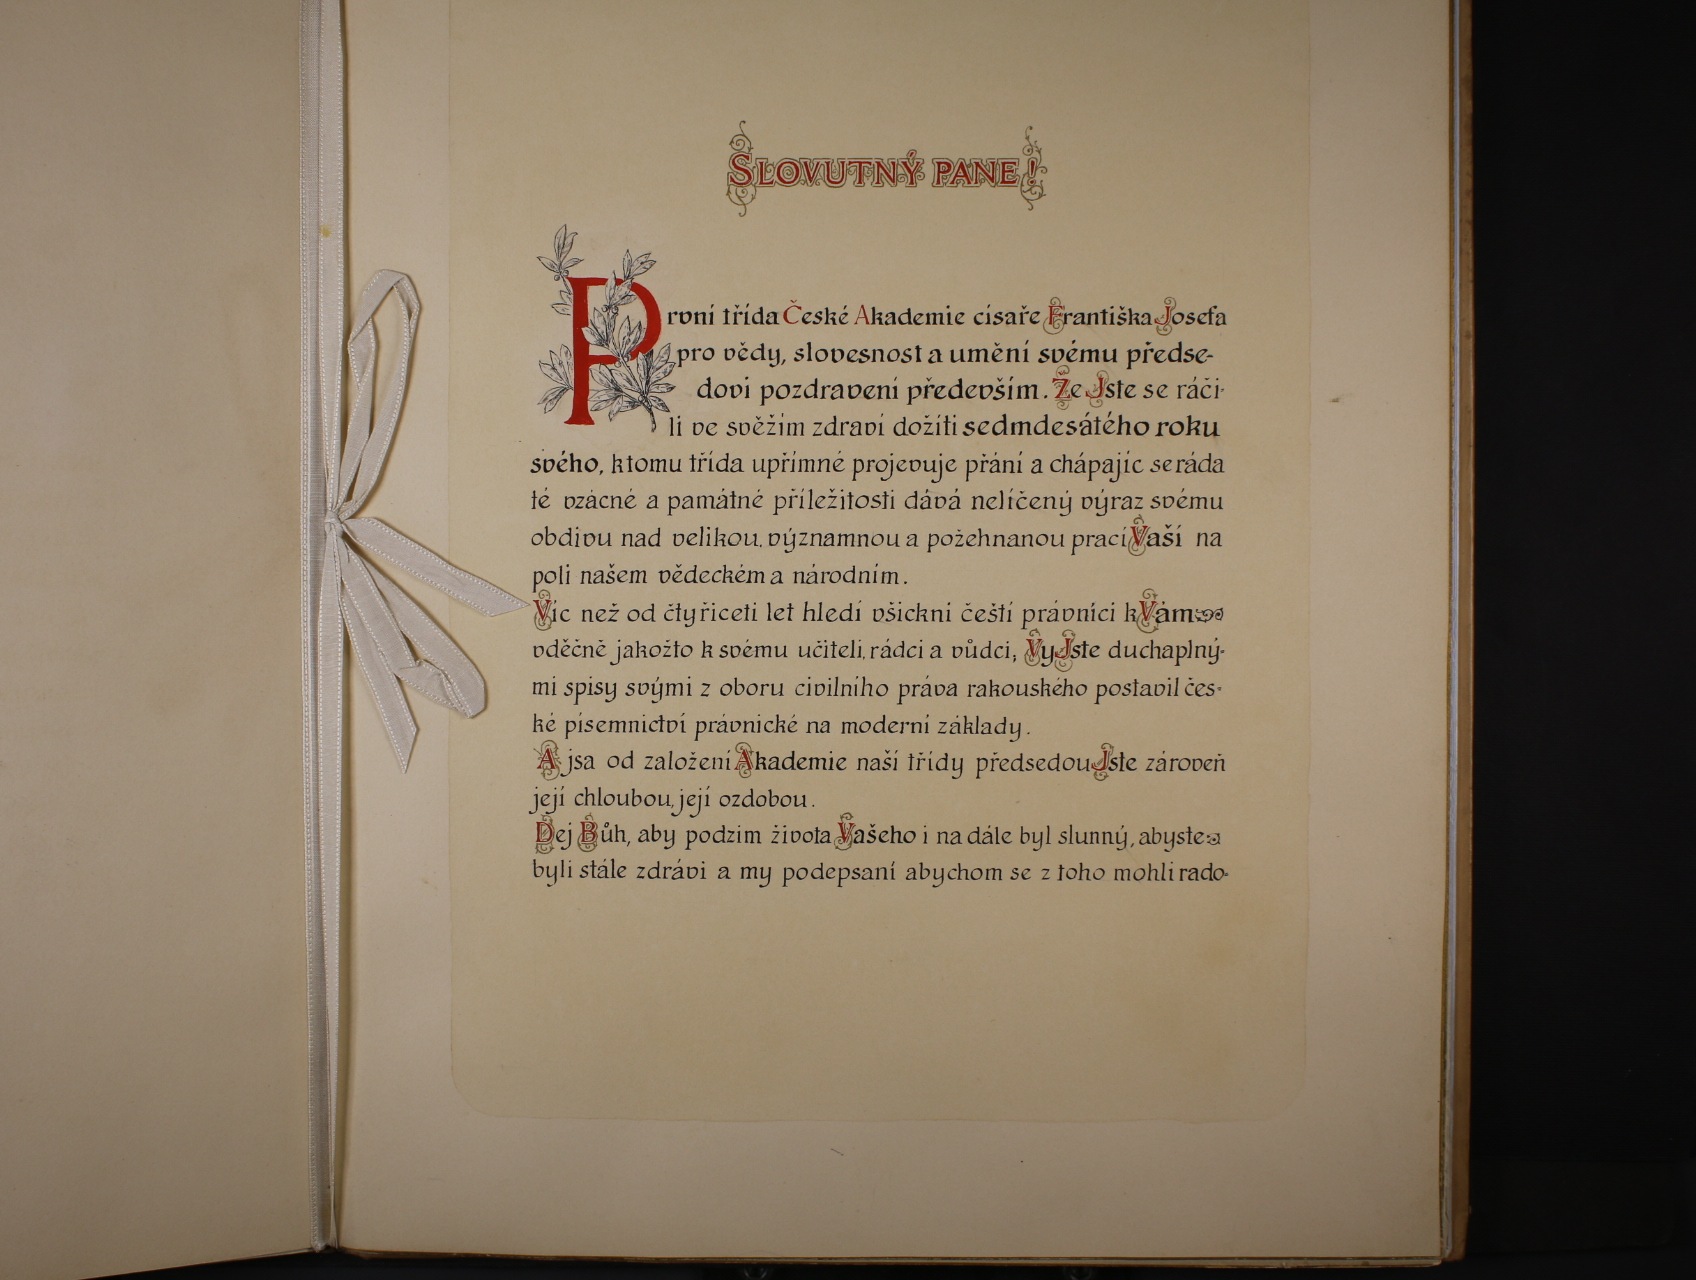 SLOVUTNÝ PANE!
První třída České Akademie císaře Františka Josefa
pro vědy, slovesnost a umění svému předse-
dovi pozdravení především. Že Jste se ráči-
li ve svěžím zdraví dožíti sedmdesátého roku
svého, k tomu třída upřímné projevuje přání a chápajíc se ráda
té vzácné a památné příležitosti dává nelíčený výraz svému
obdivu nad velikou, významnou a požehnanou prací Vaší na
poli našem vědeckém a národním.
Víc než od čtyřiceti let hledí všickni čeští právníci k Vám
vděčně jakožto k svému učiteli, rádci a vůdci; Vy Jste duchaplný-
mi spisy svými z oboru civilního práva rakouského postavil čes-
ké písemnictví právnické na moderní základy.
A jsa od založení Akademie naší třídy předsedou Jste zároveň
její chloubou, její ozdobou.
Dej Bůh, aby podzim života Vašeho i na dále byl slunný, abyste
byli stále zdrávi a my podepsaní abychom se z toho mohli rado-